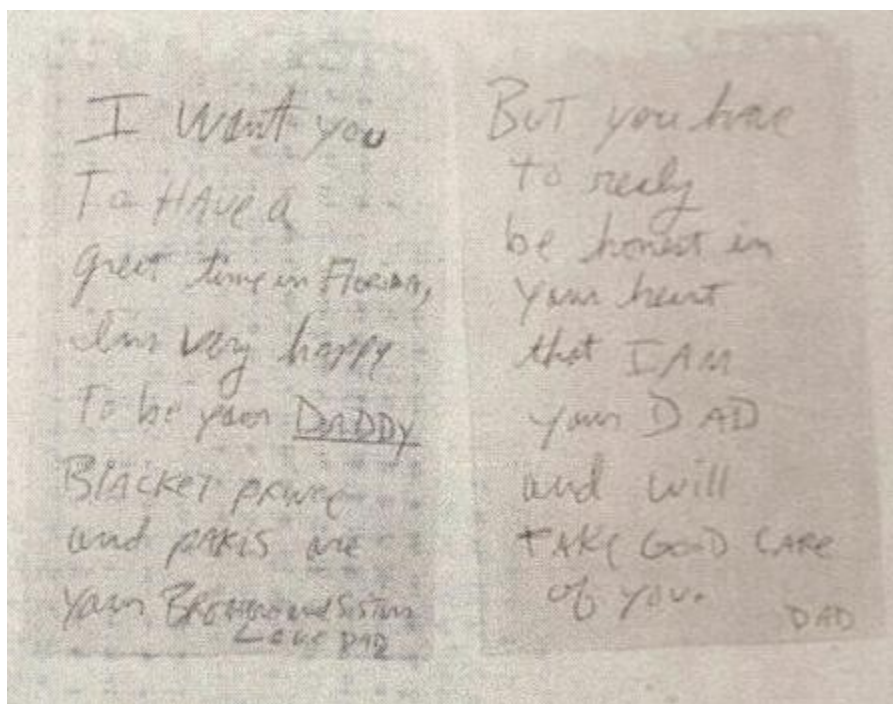 I want you
To HAve a
great time in FLORIDA,
I'm very happy
To be your DADDY
BlACKET PRINCE
and PARIS are
your BROTHER and Sisters
Love DAD
BUT you have
to realy
be honest in
your heart
that I AM
your DAD
and will
TAKE GOOD CARe
of you.
DAD